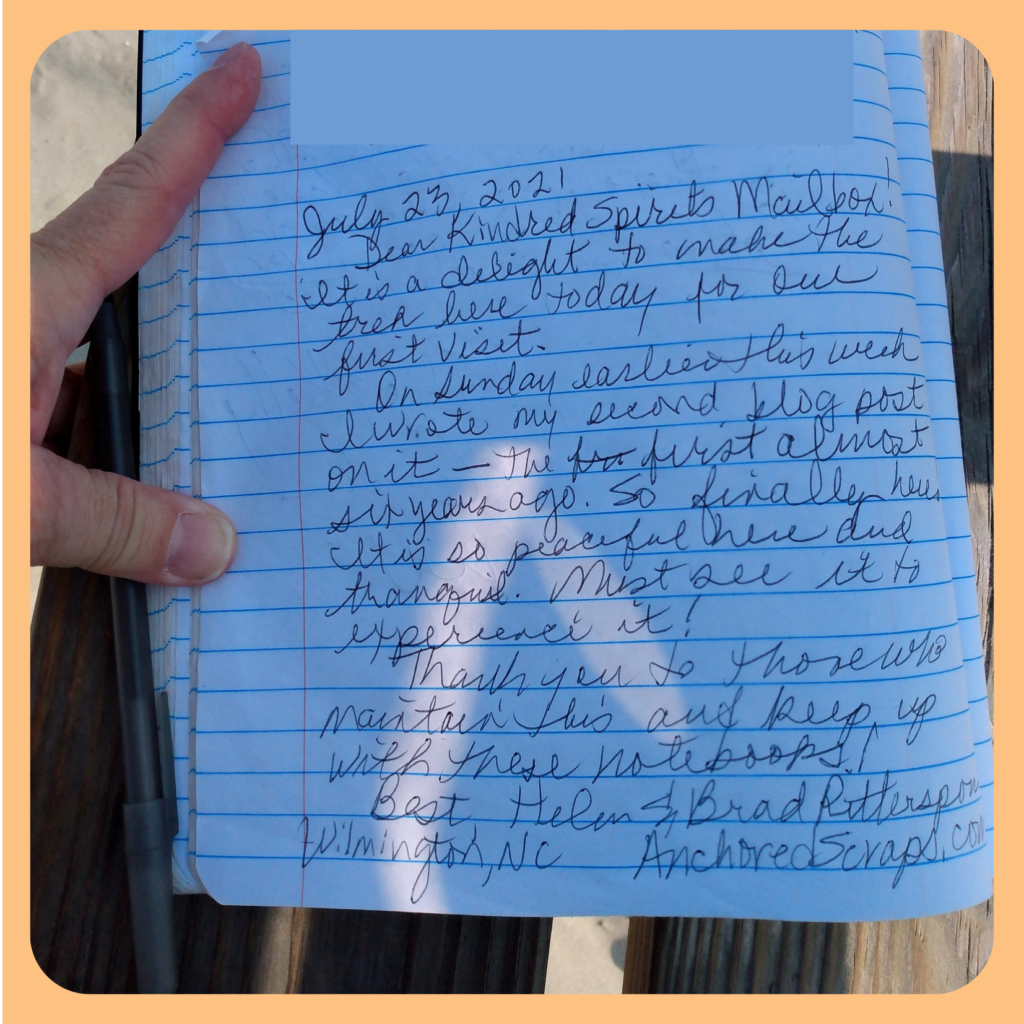 July 23, 2021
Dear Kindred Spirits Mailbox!
It is a delight to make the
trek here today for our
first visit.
On Sunday earlier this week
I wrote my second blog post
on it — the first almost
six years ago. So finally here.
It is so peaceful here and
tranquil. Must see it to
experience it!
Thank you to those who
maintain this and keep up
with these notebooks!
Best Helen & Brad Ritterspon
Wilmington, NC AnchoredScraps.com